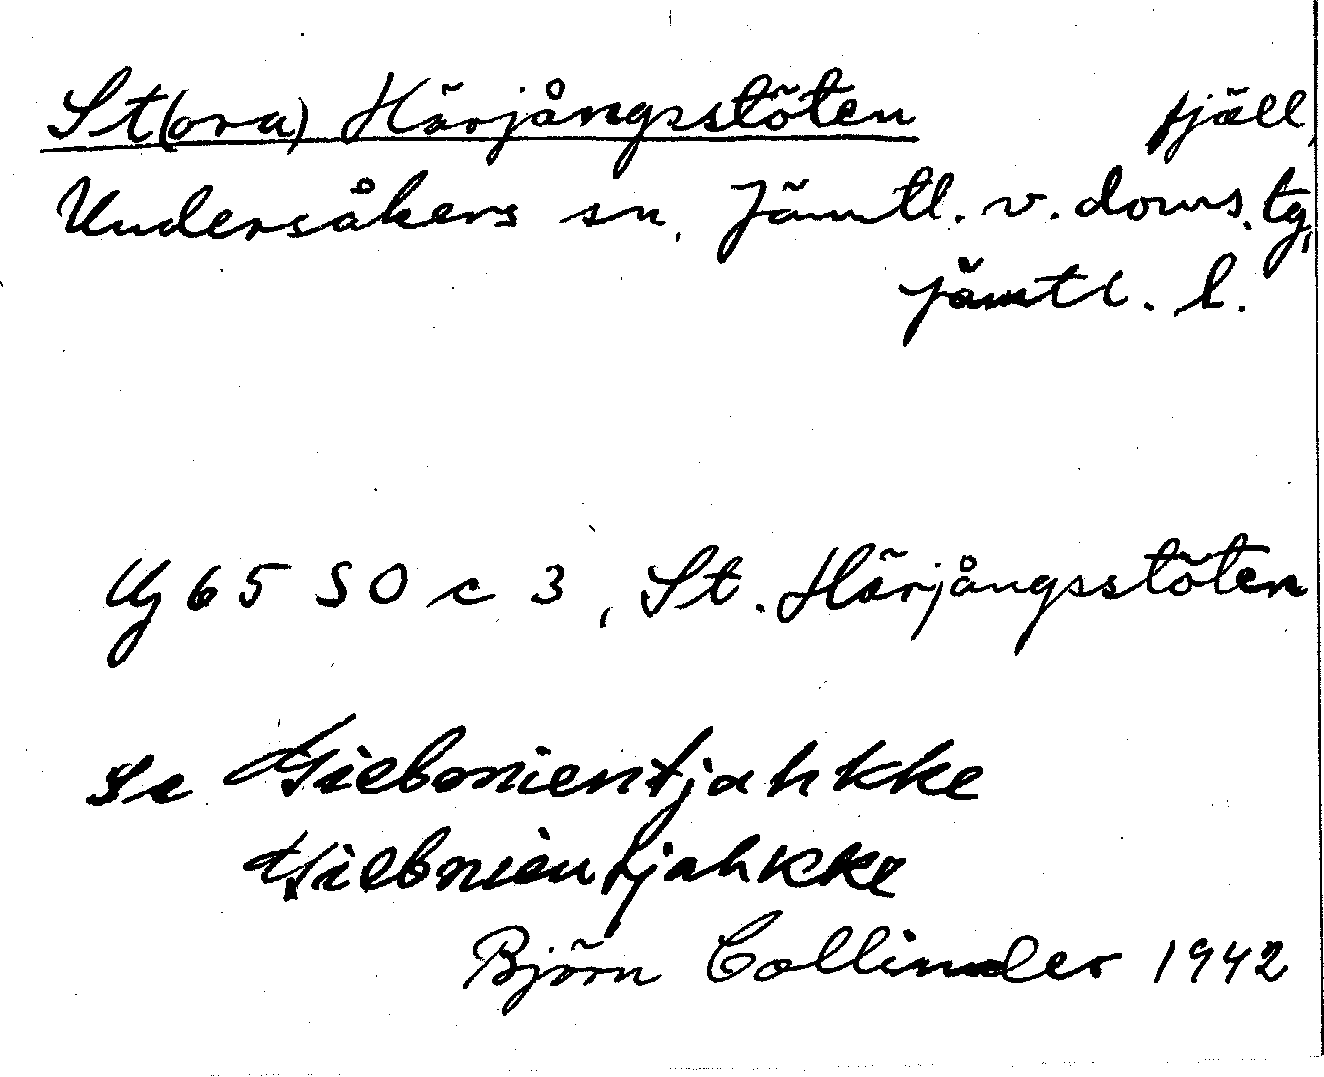 St(ora) Härjångsstöten fjäll,
Undersåkers sn, Jämtl. v. doms. tg,
Jämtl. l.
Ug 65 SO c 3, St. Härjångsstöten
Se Giebonientjahkke
Giebnientjahkke
Björn Collinder 1942